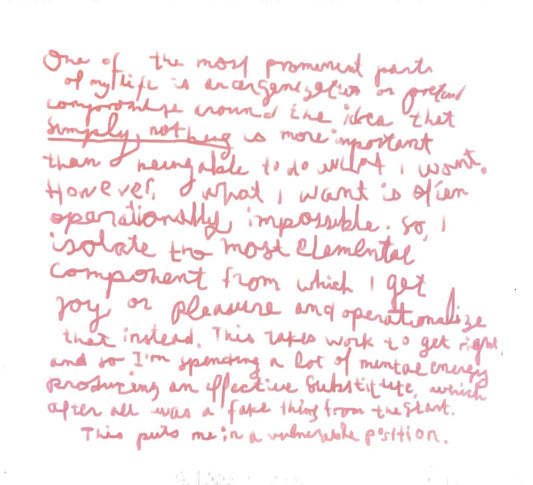 One of the most prominent parts
of my life is an organization or pretend
around the idea that
simply, nothing is more important
than being able to do what I want.
However, what I want is often
operationally impossible. So, I
isolate the most elemental
component from which I get
joy or pleasure and operationalize
that instead. This takes work to get right
and so I'm spending a lot of mental energy
producing an effective substitute, which
after all was a fake thing from the start.
This puts me in a vulnerable position.